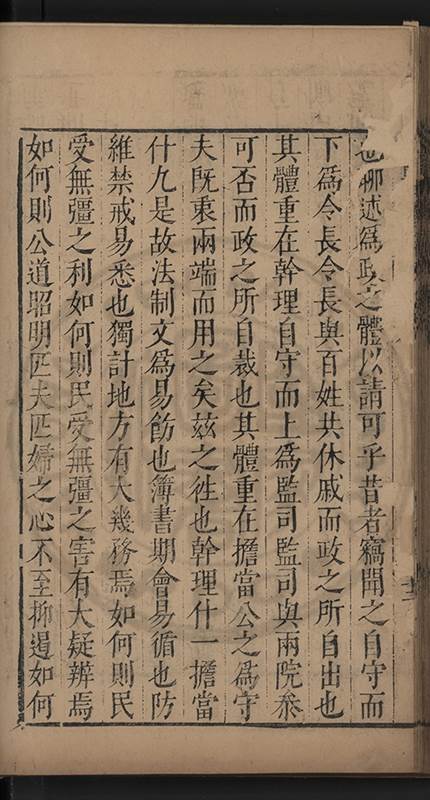 也聊述為政之體以請可乎昔者竊聞之自守而
下爲令長令長與百姓共休戚而政之所自出也
其體重在幹理自守而上爲監司監司與兩院叅
可否而政之所自裁也其體重在擔當公之爲守
夫既衷兩端而用之矣茲之徃也幹理什一擔當
什九是故法制文爲易飭也簿書期會易循也防
維禁戒易悉也獨計地方有大幾務焉如何則民
受無彊之利如何則民受無彊之害有大疑辨焉
如何則公道昭明匹夫匹婦之心不至抑遏如何